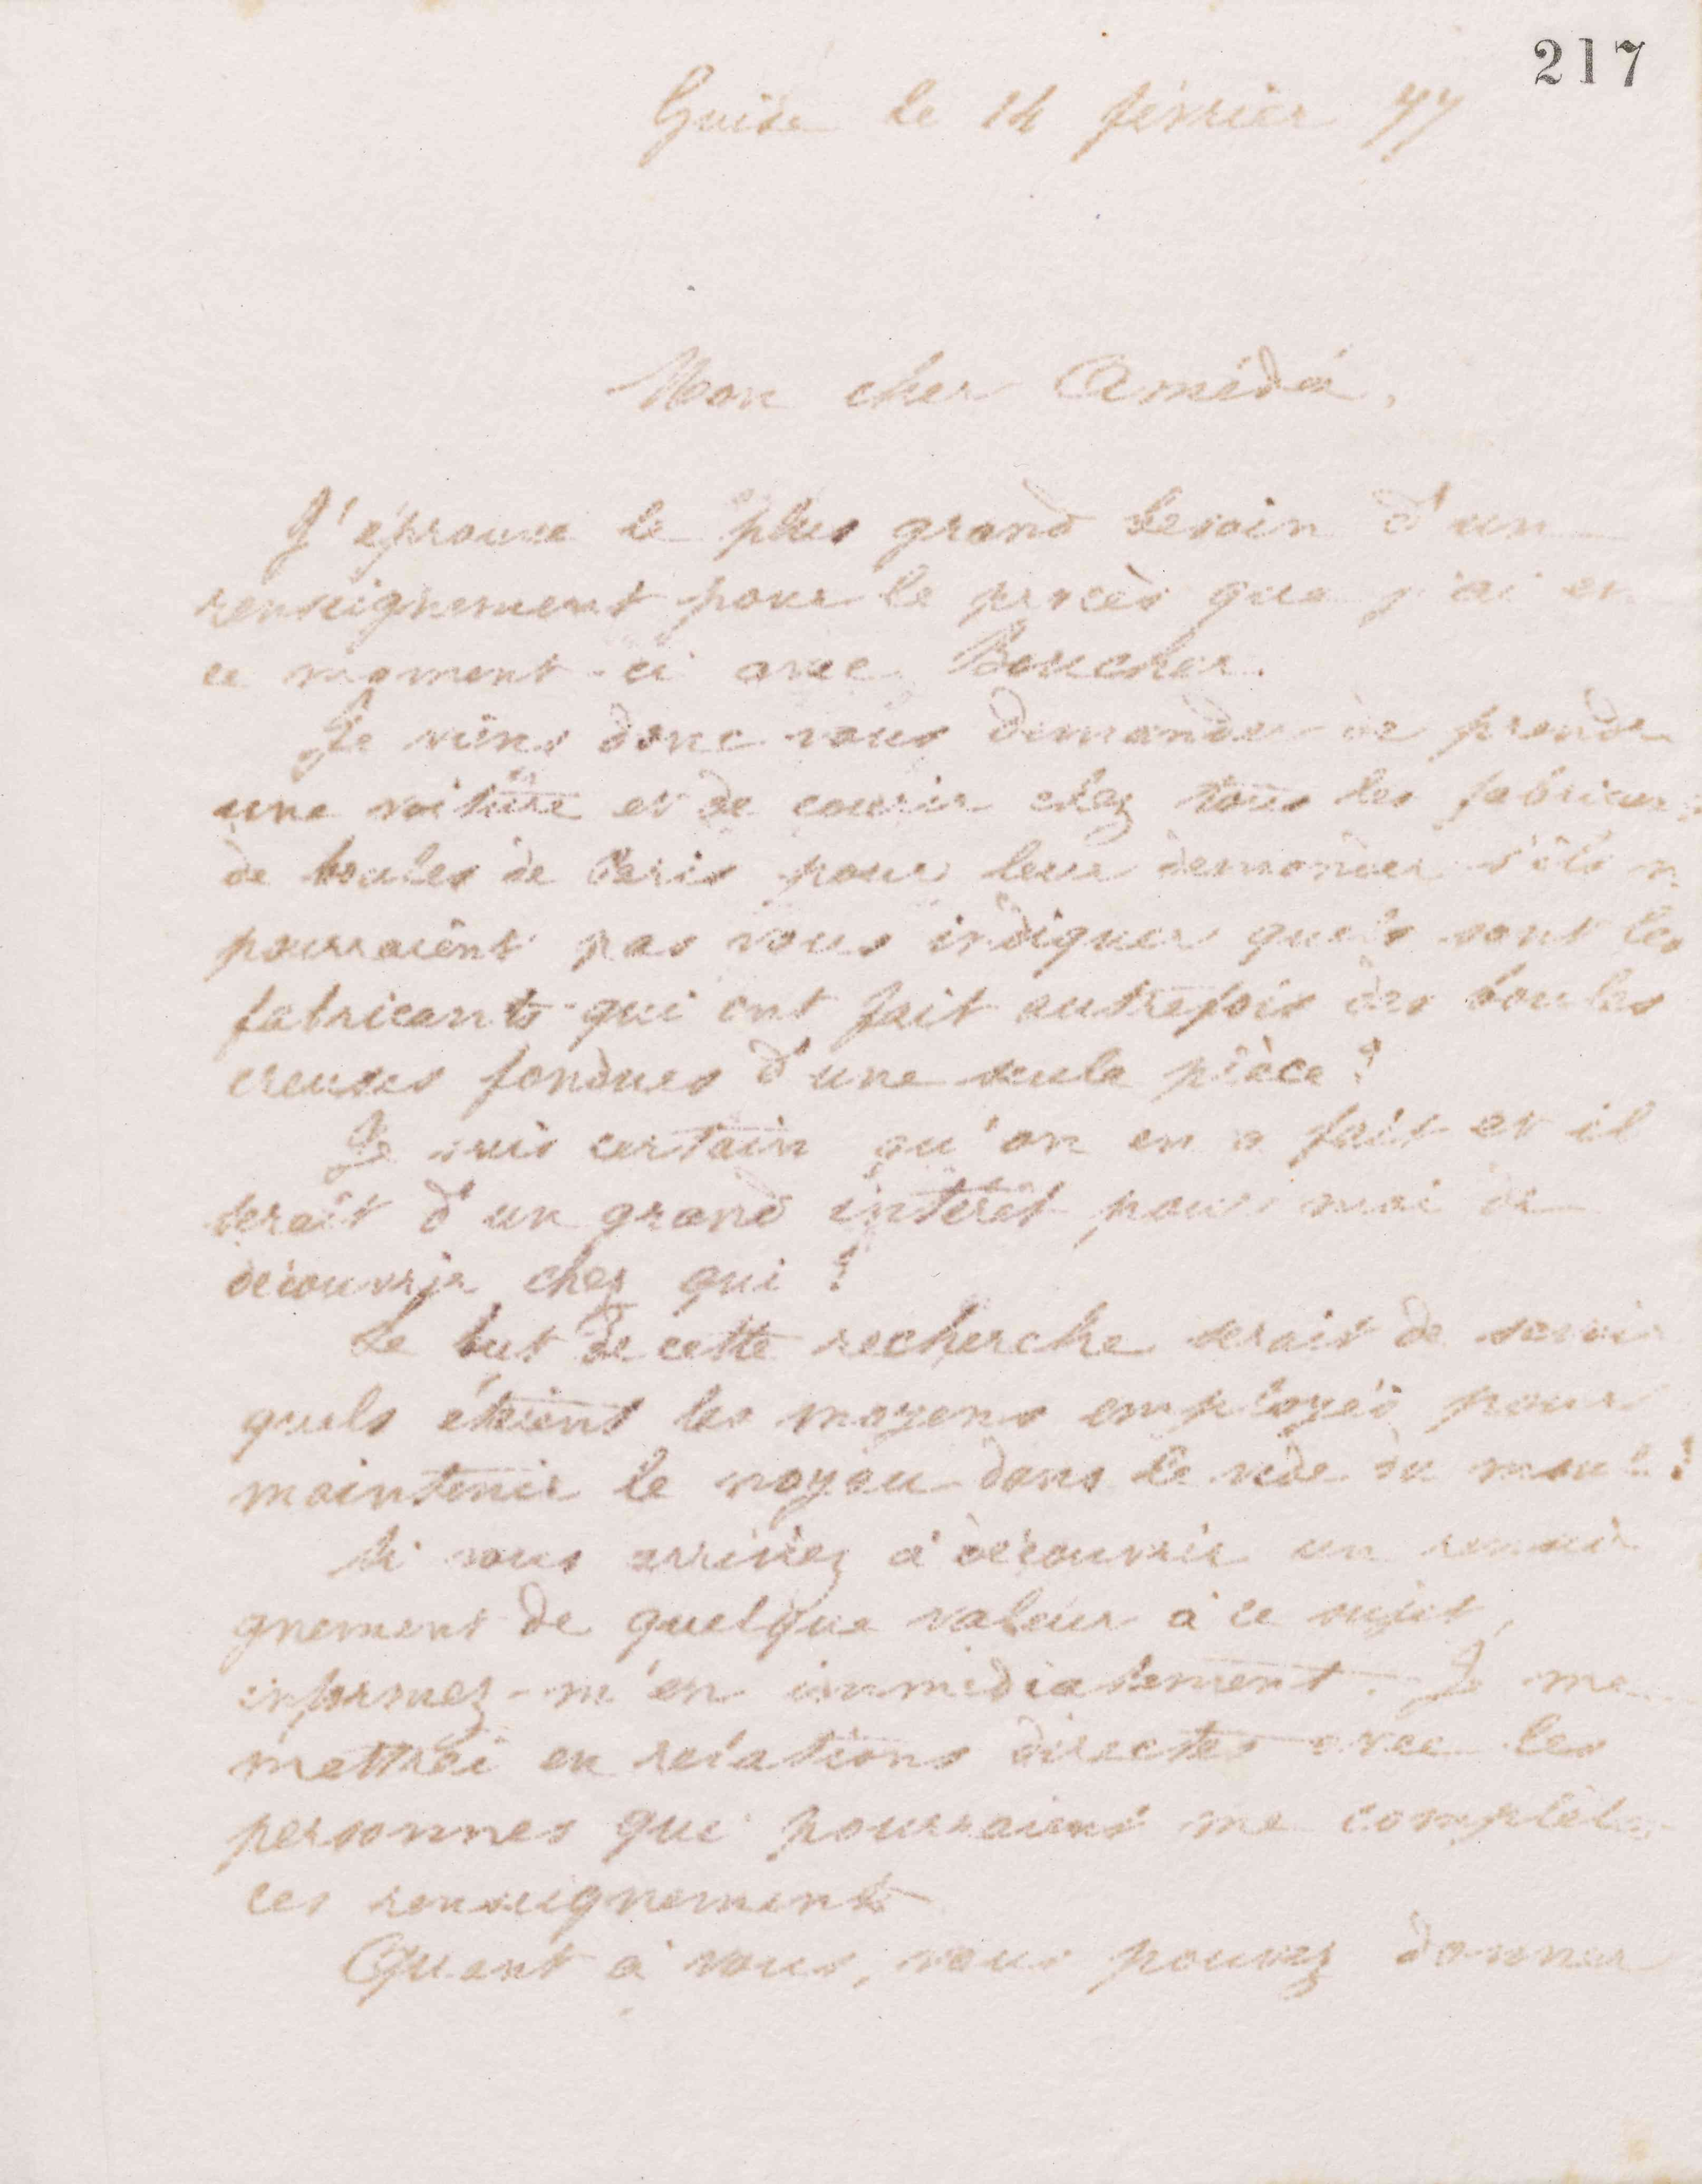 217
Guise le 14 février 77
Mon cher Amédée,
J'éprouve le plus grand besoin d'un
renseignement pour le procès que j'ai en
ce moment-ci avec Boucher.
Je viens donc vous demander de prendre
une voiture et de courir chez tous les fabricants
de boules de Paris pour leur demander s'ils n
pourraient pas vous indiquer quels sont les
fabricants qui ont fait autrefois des boules
creuses fondues d'une seule pièce?
Je suis certain qu'on en a fait et il
serait d'un grand intérêt pour moi de
découvrir chez qui?
Le but de cette recherche serait de savoir
quels étaient les moyens employés pour
maintenir le noyau dans le vide du moule?
Si vous arrivez à découvrir un rensei
gnement de quelque valeur à ce sujet,
informez-m'en immédiatement. Je me
mettrai en relations directes avec les
personnes qui pourraient me compléter
ces renseignements
Quant à vous, vous pouvez donner